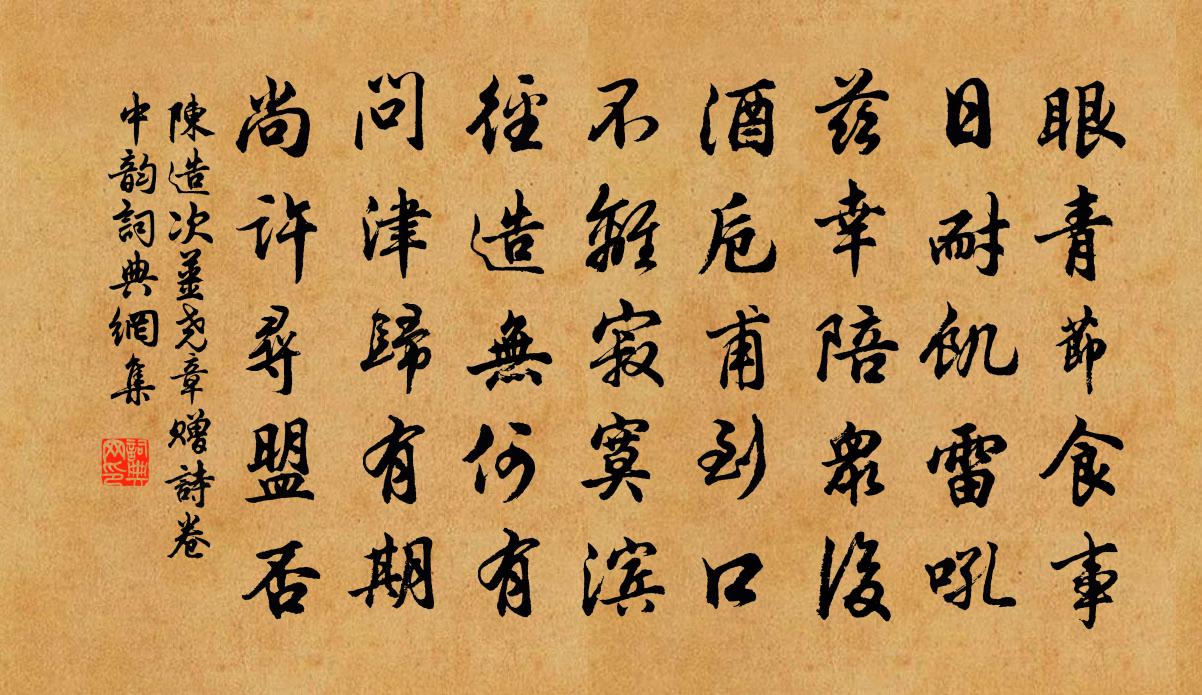 眼青節食事
日耐飢雷吼
茲幸陪眾後
酒卮甫到口
不離寂寞滨
徑造無何有
問津歸有期
尚許尋盟否
陳造次姜堯章贈詩卷
中韵詞典網集
詞典网印